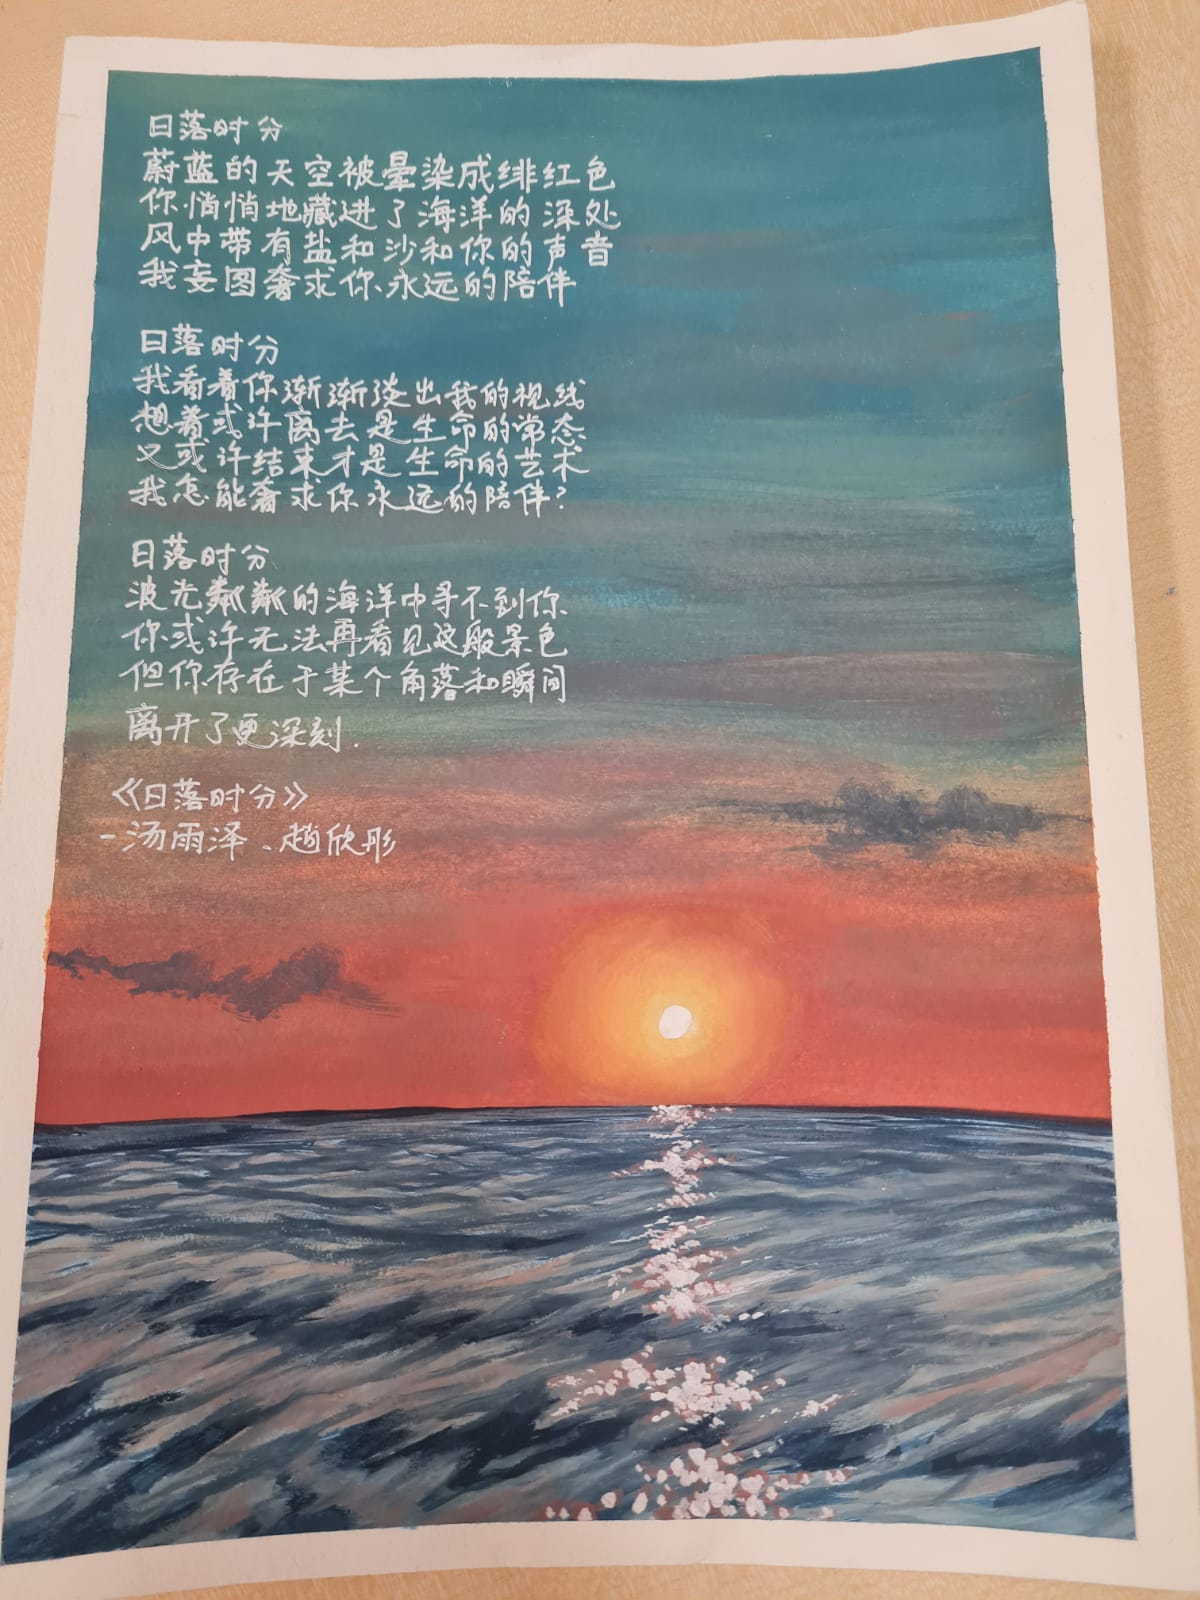 日落时分
蔚蓝的天空被晕染成绯红色
你悄悄地藏进了海洋的深处
风中带有盐和沙和你的声音
我妄图奢求你永远的陪伴
日落时分
我看着你渐渐淡出我的视线
想着或许离去是生命的常态
又或许结束才是生命的艺术
我怎能奢求你永远的陪伴?
日落时分
波光粼粼的海洋中寻不到你
你或许无法再看见这般景色
但你存在于某个角落和瞬间
离开了更深刻.
《日落时分》
-汤雨泽、赵欣彤